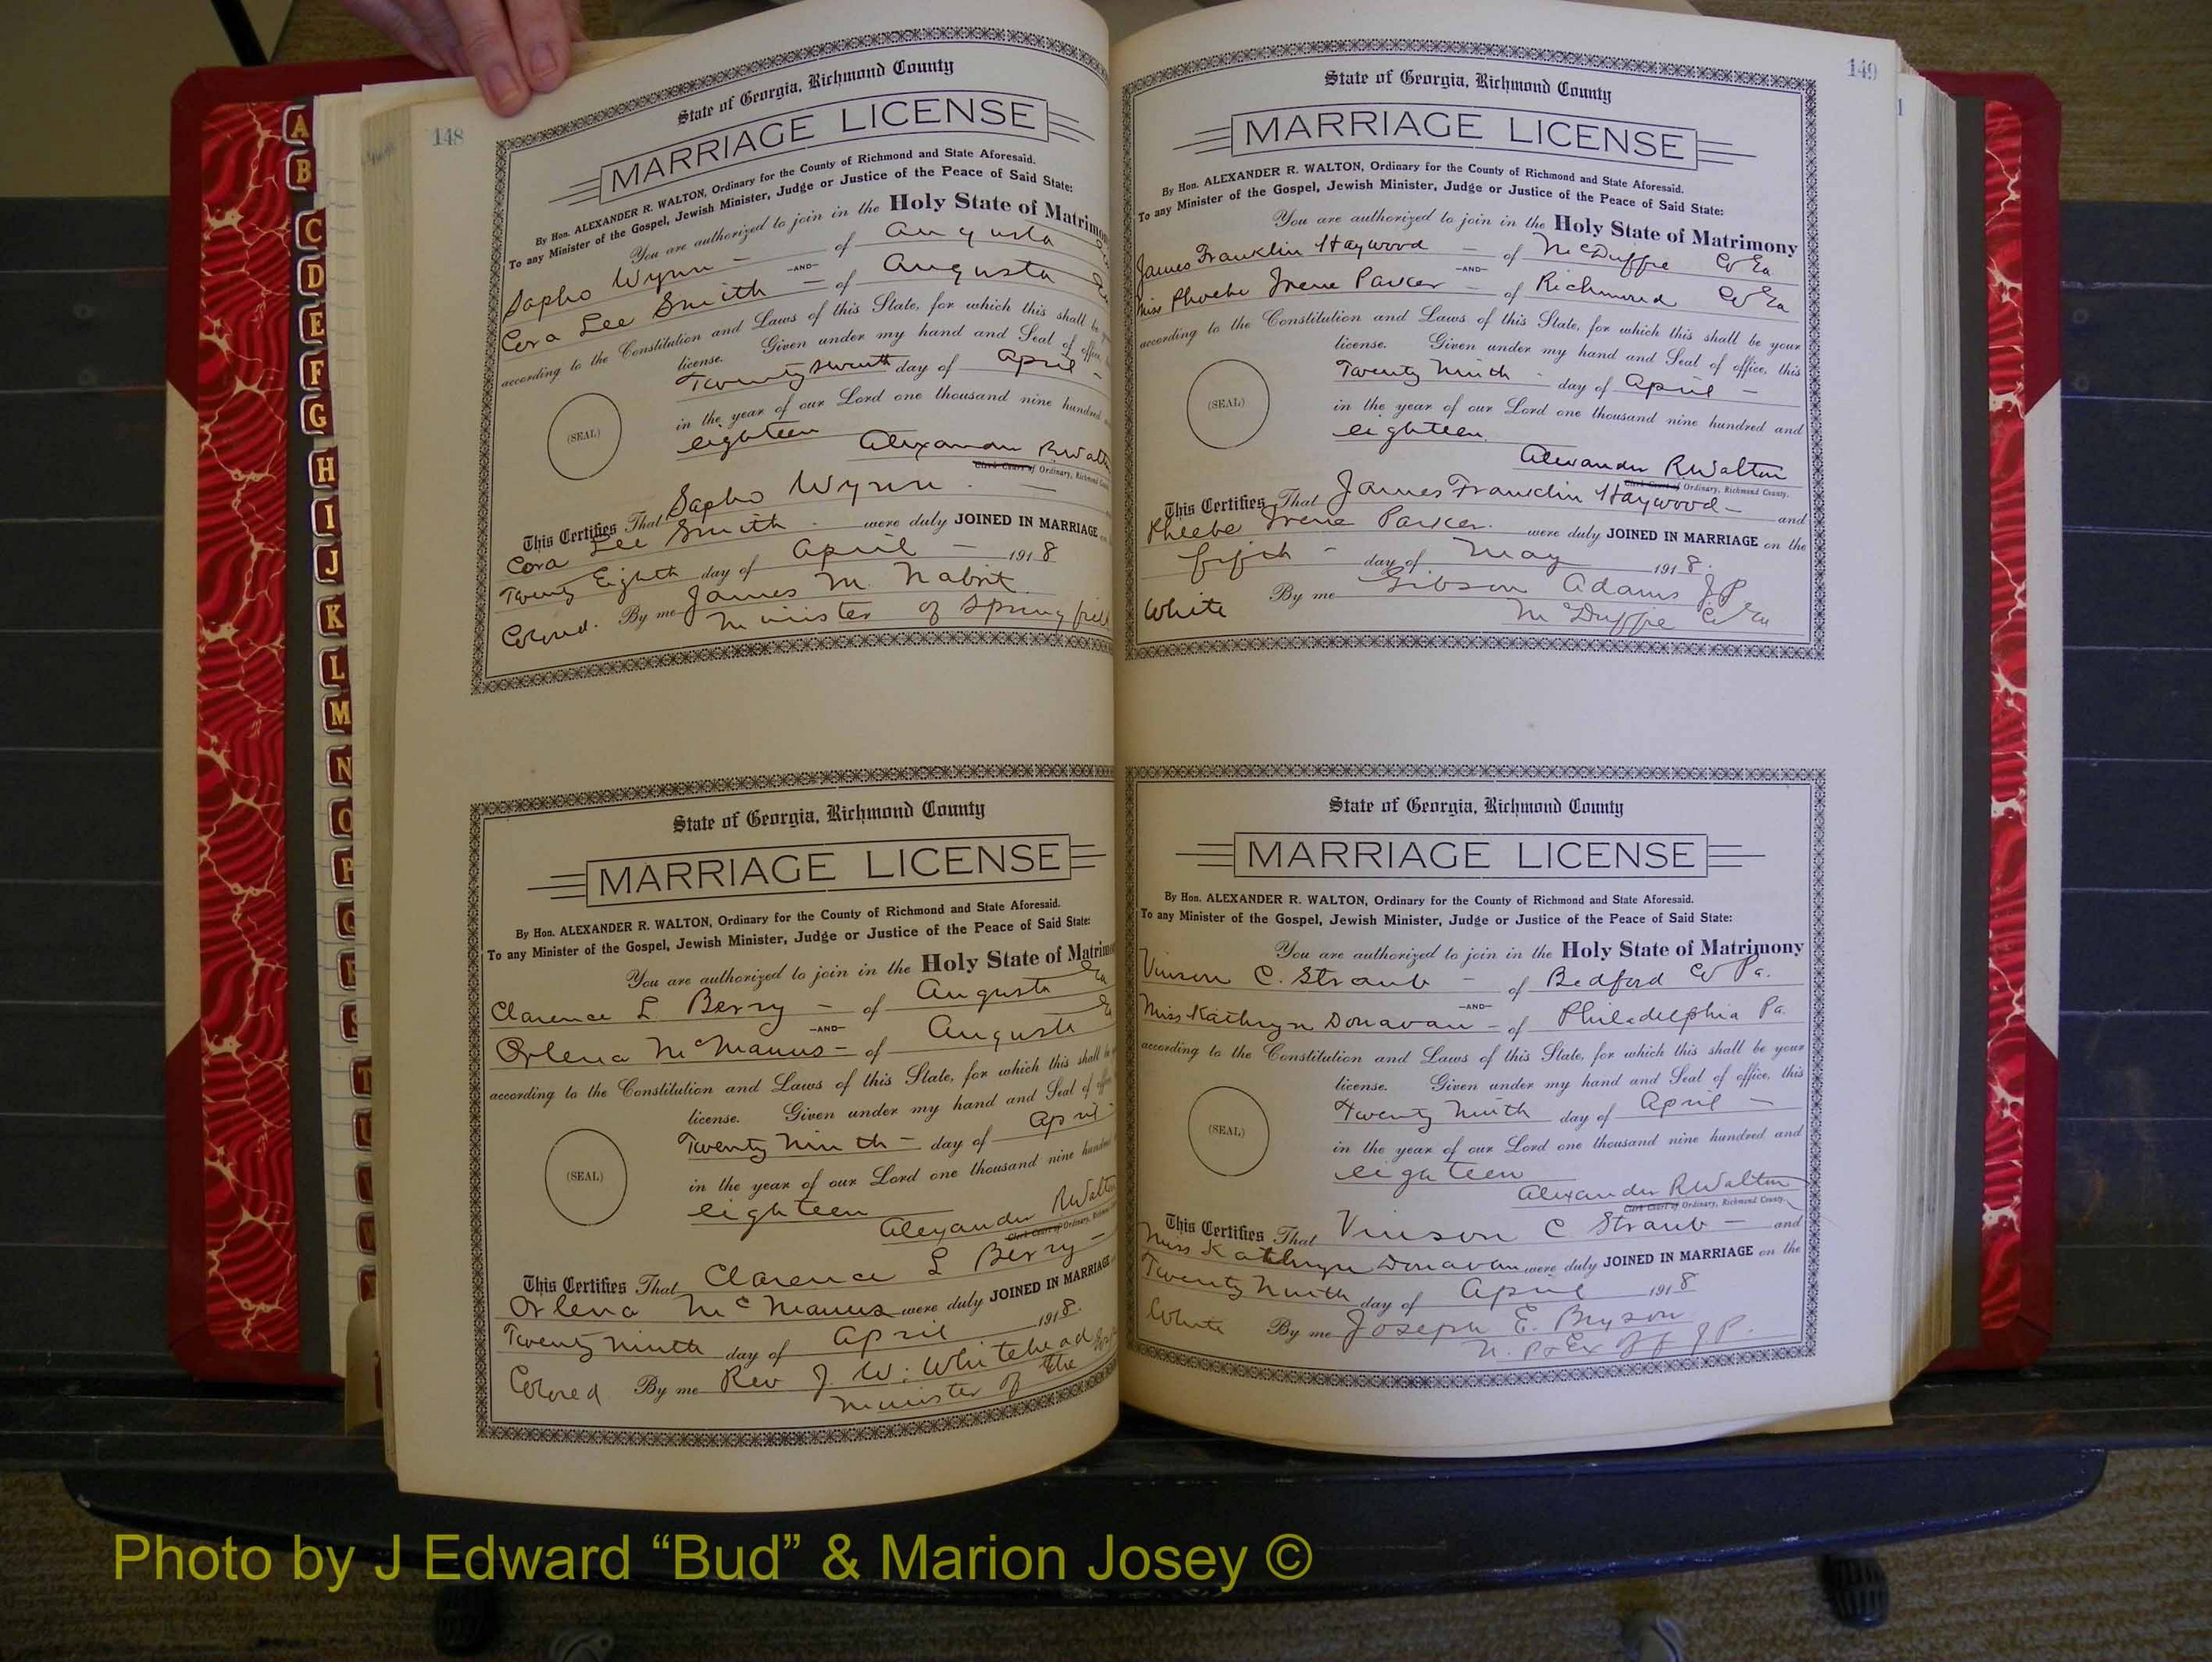 A
B
C
D
E
F
G
H
I
J
K
L
M
N
O
P
Q
R
S
T
148
State of Georgia, Richmond County
MARRIAGE LICENSE
By Hon. ALEXANDER R. WALTON, Ordinary for the County of Richmond and State Aforesaid.
To any Minister of the Gospel, Jewish Minister, Judge or Justice of the Peace of Said State:
You are authorized to join in the Holy State of Matrimo
Sapho Wynn - of Augusta
-AND-
Cora Lee Smith - of Augusta
according to the Constitution and Laws of this State, for which this shall be
license. Given under my hand and Seal of office,
Twenty seventh day of April -
(SEAL)
in the year of our Lord one thousand nine hundred
eighteen
Alexander R Walt
Clerk Court of Ordinary, Richmond
This Certifies That Sapho Wynn
Cora Lee Smith were duly JOINED IN MARRIAGE
Twenty Eighth day of April - 1918
Colored. By me James M. Nabrit
Minister of Springfiel
State of Georgia, Richmond County
MARRIAGE LICENSE
By Hon. ALEXANDER R. WALTON, Ordinary for the County of Richmond and State Aforesaid.
To any Minister of the Gospel, Jewish Minister, Judge or Justice of the Peace of Said State:
You are authorized to join in the Holy State of Matrimo
Clarence L. Berry - of Augusta Ga
-AND-
Orlena McManus - of Augusta
according to the Constitution and Laws of this State, for which this shall be
license. Given under my hand and Seal of office
Twenty Ninth - day of April -
(SEAL)
in the year of our Lord one thousand nine hundred
eighteen
Alexander R Walto
Clerk Court of Ordinary, Richmond
This Certifies That Clarence L Berry -
Orlena McManus were duly JOINED IN MARRIAGE
Twenty ninth day of April 1918.
Colored By me Rev J. W. Whitehead
Minister of the
149
State of Georgia, Richmond County
MARRIAGE LICENSE
By Hon. ALEXANDER R. WALTON, Ordinary for the County of Richmond and State Aforesaid.
To any Minister of the Gospel, Jewish Minister, Judge or Justice of the Peace of Said State:
You are authorized to join in the Holy State of Matrimony
James Franklin Haywood - of McDuffie Co Ga
-AND-
Miss Phoebe Irene Parker - of Richmond Co Ga
according to the Constitution and Laws of this State, for which this shall be your
license. Given under my hand and Seal of office, this
Twenty Ninth - day of April -
(SEAL)
in the year of our Lord one thousand nine hundred and
eighteen
Alexander R Walton
Clerk Court of Ordinary, Richmond County.
This Certifies That James Franklin Haywood - and
Pheebe Irene Parker. were duly JOINED IN MARRIAGE on the
fifth - day of May 1918.
White By me Gibson Adams J.P.
McDuffie Co Ga
State of Georgia, Richmond County
MARRIAGE LICENSE
By Hon. ALEXANDER R. WALTON, Ordinary for the County of Richmond and State Aforesaid.
To any Minister of the Gospel, Jewish Minister, Judge or Justice of the Peace of Said State:
You are authorized to join in the Holy State of Matrimony
Vinson C. Straub - of Bedford Co Pa.
-AND-
Miss Kathryn Donavan - of Philadelphia Pa.
according to the Constitution and Laws of this State, for which this shall be your
license. Given under my hand and Seal of office, this
Twenty Ninth day of April -
(SEAL)
in the year of our Lord one thousand nine hundred and
eighteen
Alexander R Walton
Clerk Court of Ordinary, Richmond County.
This Certifies That Vinson C. Straub - and
Miss Kathryn Donavan were duly JOINED IN MARRIAGE on the
Twenty Ninth day of April 1918
White By me Joseph E. Bryson
N. P & Ex Off J P.
Photo by J Edward “Bud” & Marion Josey ©